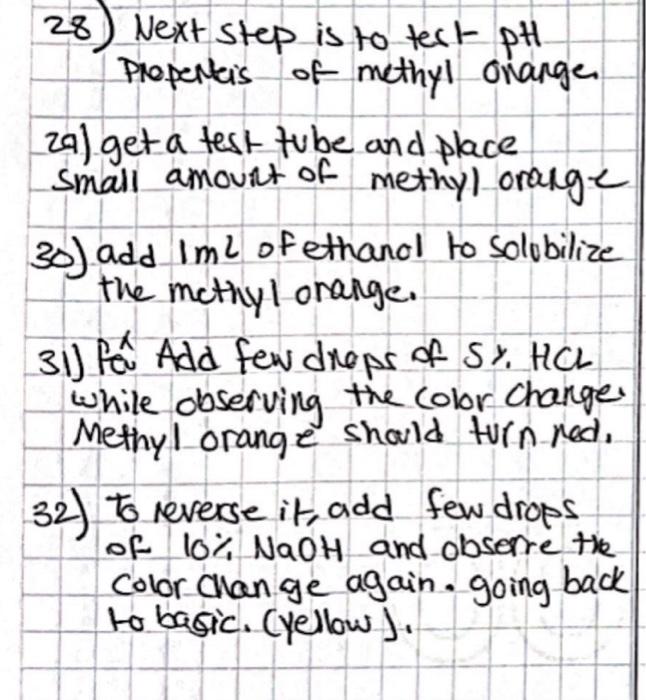 28) Next step is to test pH
Properteis of methyl orange.
29) get a test tube and place
small amount of methyl orange
30) add 1mL of ethanol to solubilize
the methyl orange.
31) Add few drops of 5%. HCL
while observing the color change.
Methyl orange should turn red.
32) To reverse it, add few drops
of 10% NaOH and observe the
color change again. going back
to basic. (yellow).